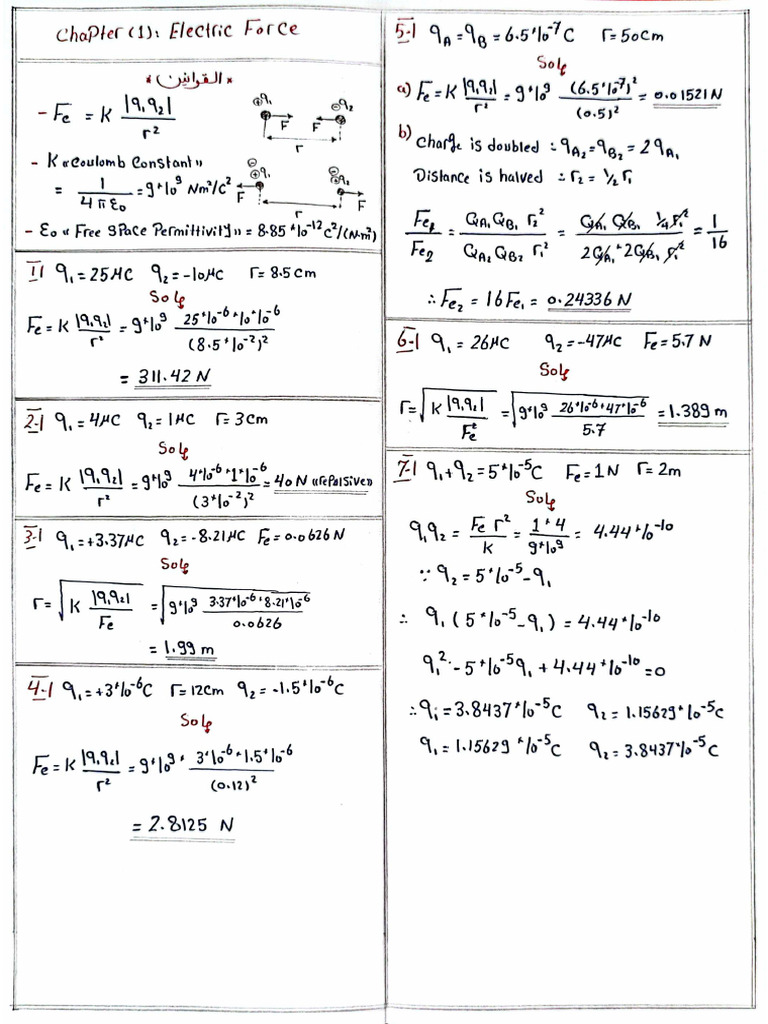 Chapter (1): Electric Force
* القوانين *
- Fe = K |q₁q₂| / r²
⊕q₁ ⊕q₂
F F
r
- K «Coulomb Constant»
= 1 / 4πε₀ = 9*10⁹ Nm²/C²
⊖ ⊕q₁ ⊖ ⊕q₂
F F
r
- ε₀ «Free space Permittivity» = 8.85*10⁻¹² C²/(N.m²)
1-| q₁ = 25μC q₂ = -10μC r = 8.5cm
Sol.
Fe = K |q₁q₂| / r² = 9*10⁹ 25*10⁻⁶*10*10⁻⁶ / (8.5*10⁻²)²
= 311.42 N
2-| q₁ = 4μC q₂ = 1μC r = 3cm
Sol.
Fe = K |q₁q₂| / r² = 9*10⁹ 4*10⁻⁶*1*10⁻⁶ / (3*10⁻²)² = 40N «repulsive»
3-| q₁ = +3.37μC q₂ = -8.21μC Fe = 0.0626 N
Sol.
r = √(K |q₁q₂| / Fe) = √(9*10⁹ 3.37*10⁻⁶*8.21*10⁻⁶ / 0.0626)
= 1.99 m
4-| q₁ = +3*10⁻⁶C r = 12cm q₂ = -1.5*10⁻⁶C
Sol.
Fe = K |q₁q₂| / r² = 9*10⁹ * 3*10⁻⁶*1.5*10⁻⁶ / (0.12)²
= 2.8125 N
5-| qA = qB = 6.5*10⁻⁷C r = 50cm
Sol.
a) Fe = K |q₁q₂| / r² = 9*10⁹ (6.5*10⁻⁷)² / (0.5)² = 0.01521 N
b) Charge is doubled ∴ qA₂ = qB₂ = 2qA₁
Distance is halved ∴ r₂ = ½ r₁
Fe₁ / Fe₂ = QA₁ QB₁ r₂² / QA₂ QB₂ r₁² = QA₁ QB₁ ¼ r₁² / 2QA₁*2QB₁ r₁² = 1 / 16
∴ Fe₂ = 16Fe₁ = 0.24336 N
6-| q₁ = 26μC q₂ = -47μC Fe = 5.7 N
Sol.
r = √(K |q₁q₂| / Fe) = √(9*10⁹ 26*10⁻⁶*47*10⁻⁶ / 5.7) = 1.389 m
7-| q₁+q₂ = 5*10⁻⁵C Fe = 1N r = 2m
Sol.
q₁q₂ = Fe r² / K = 1*4 / 9*10⁹ = 4.44*10⁻¹⁰
∵ q₂ = 5*10⁻⁵ - q₁
∴ q₁ (5*10⁻⁵ - q₁) = 4.44*10⁻¹⁰
q₁² - 5*10⁻⁵q₁ + 4.44*10⁻¹⁰ = 0
∴ q₁ = 3.8437*10⁻⁵C q₂ = 1.15629*10⁻⁵C
q₁ = 1.15629*10⁻⁵C q₂ = 3.8437*10⁻⁵C